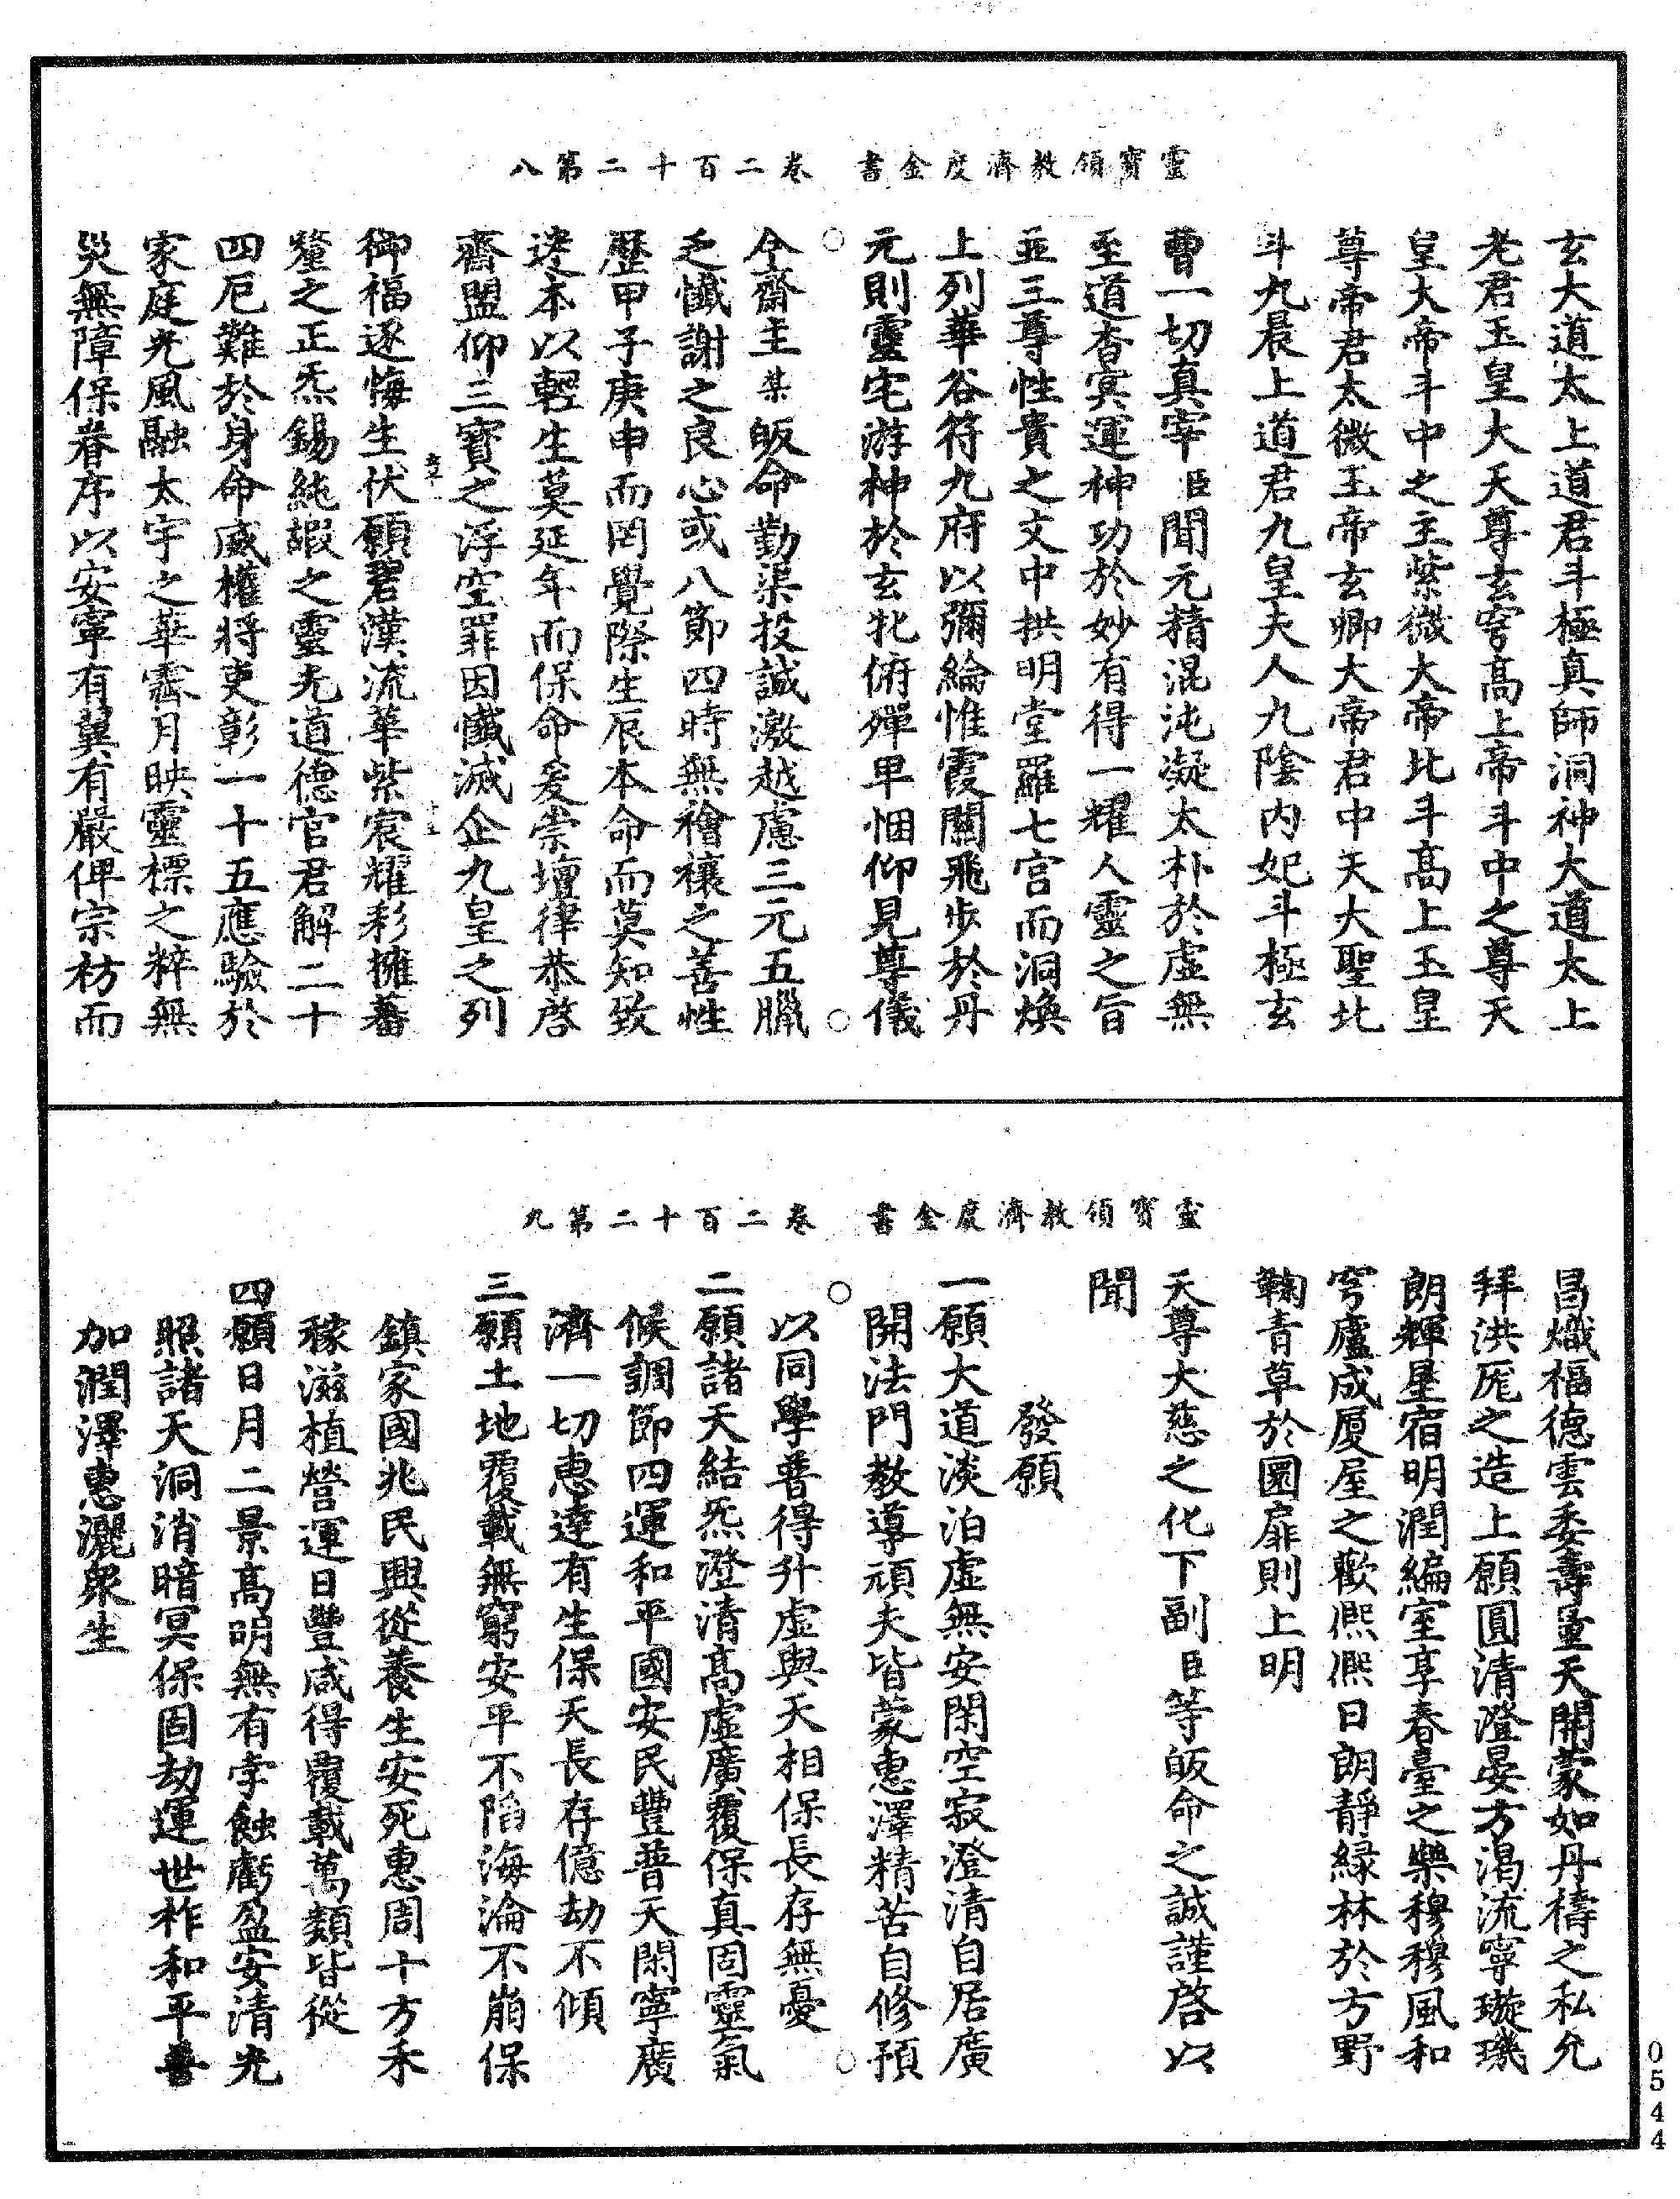 靈寶領教濟度金書　卷二百十二第八
玄大道太上道君斗極真師洞神大道太上
老君玉皇大天尊玄穹高上帝斗中之尊天
皇大帝斗中之主紫微大帝比斗高上玉皇
尊帝君太微玉帝玄卿大帝君中天大聖北
斗九晨上道君九皇夫人九陰內妃斗極玄
曹一切真宰臣聞元精混沌凝太朴於虛無
至道杳冥運神功於妙有得一耀人靈之旨
並三尊性貴之文中拱明堂羅七宮而洞煥
上列華谷符九府以彌綸惟霞關飛步於丹
元則靈宅游神於玄牝俯殫卑悃仰見尊儀
今齋主某皈命勤渠投誠激越慮三元五臘
乏懺謝之良心或八節四時無禬禳之善性
歷甲子庚申而罔覺際生辰本命而莫知致
逮本以輕生莫延年而保命爰崇壇律恭啓
齋盟仰三寶之浮空罪因懺滅企九皇之列
御福逐悔生伏願碧漢流華紫宸耀彩擁蕃
釐之正炁錫純嘏之靈光道德官君解二十
四厄難於身命威權將吏彰一十五應驗於
家庭光風融太宇之華霽月映靈標之粹無
災無障保眷序以安寧有翼有嚴俾宗枋而
靈寶領教濟度金書　卷二百十二第九
昌熾福德雲委壽量天開蒙如丹禱之私允
拜洪厖之造上願圓清澄晏方渴流寧璇璣
朗輝星宿明潤編室享春臺之樂穆穆風和
穹廬成厦屋之歡熈熈日朗靜綠林於方野
鞠青草於圜扉則上明
天尊大慈之化下副臣等皈命之誠謹啓以
聞
發願
一願大道淡泊虛無安閑空寂澄清自居廣
開法門教導頑夫皆蒙惠澤精苦自修預
以同學普得升虛與天相保長存無憂
二願諸天結炁澄清高虛廣覆保真固靈氣
候調節四運和平國安民豐普天閑寧廣
濟一切惠達有生保天長存億劫不傾
三願土地覆載無窮安平不陷海淪不崩保
鎮家國兆民興從養生安死惠周十方禾
稼滋植營運日豐咸得覆載萬類皆從
四願日月二景高明無有孛蝕虧盈安清光
照諸天洞消暗冥保固劫運世祚和平普
加潤澤惠灑衆生
0544